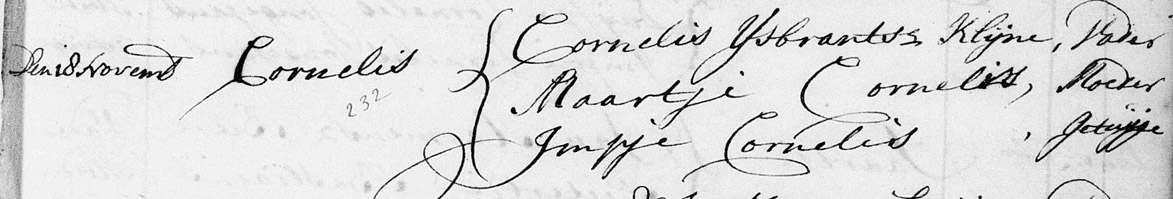 Den 18 Novemb Cornelis Cornelis Ysbrantsz Klijne, Vader
232 Maartje Cornelis, Moeder
Impje Cornelis, Getuijge